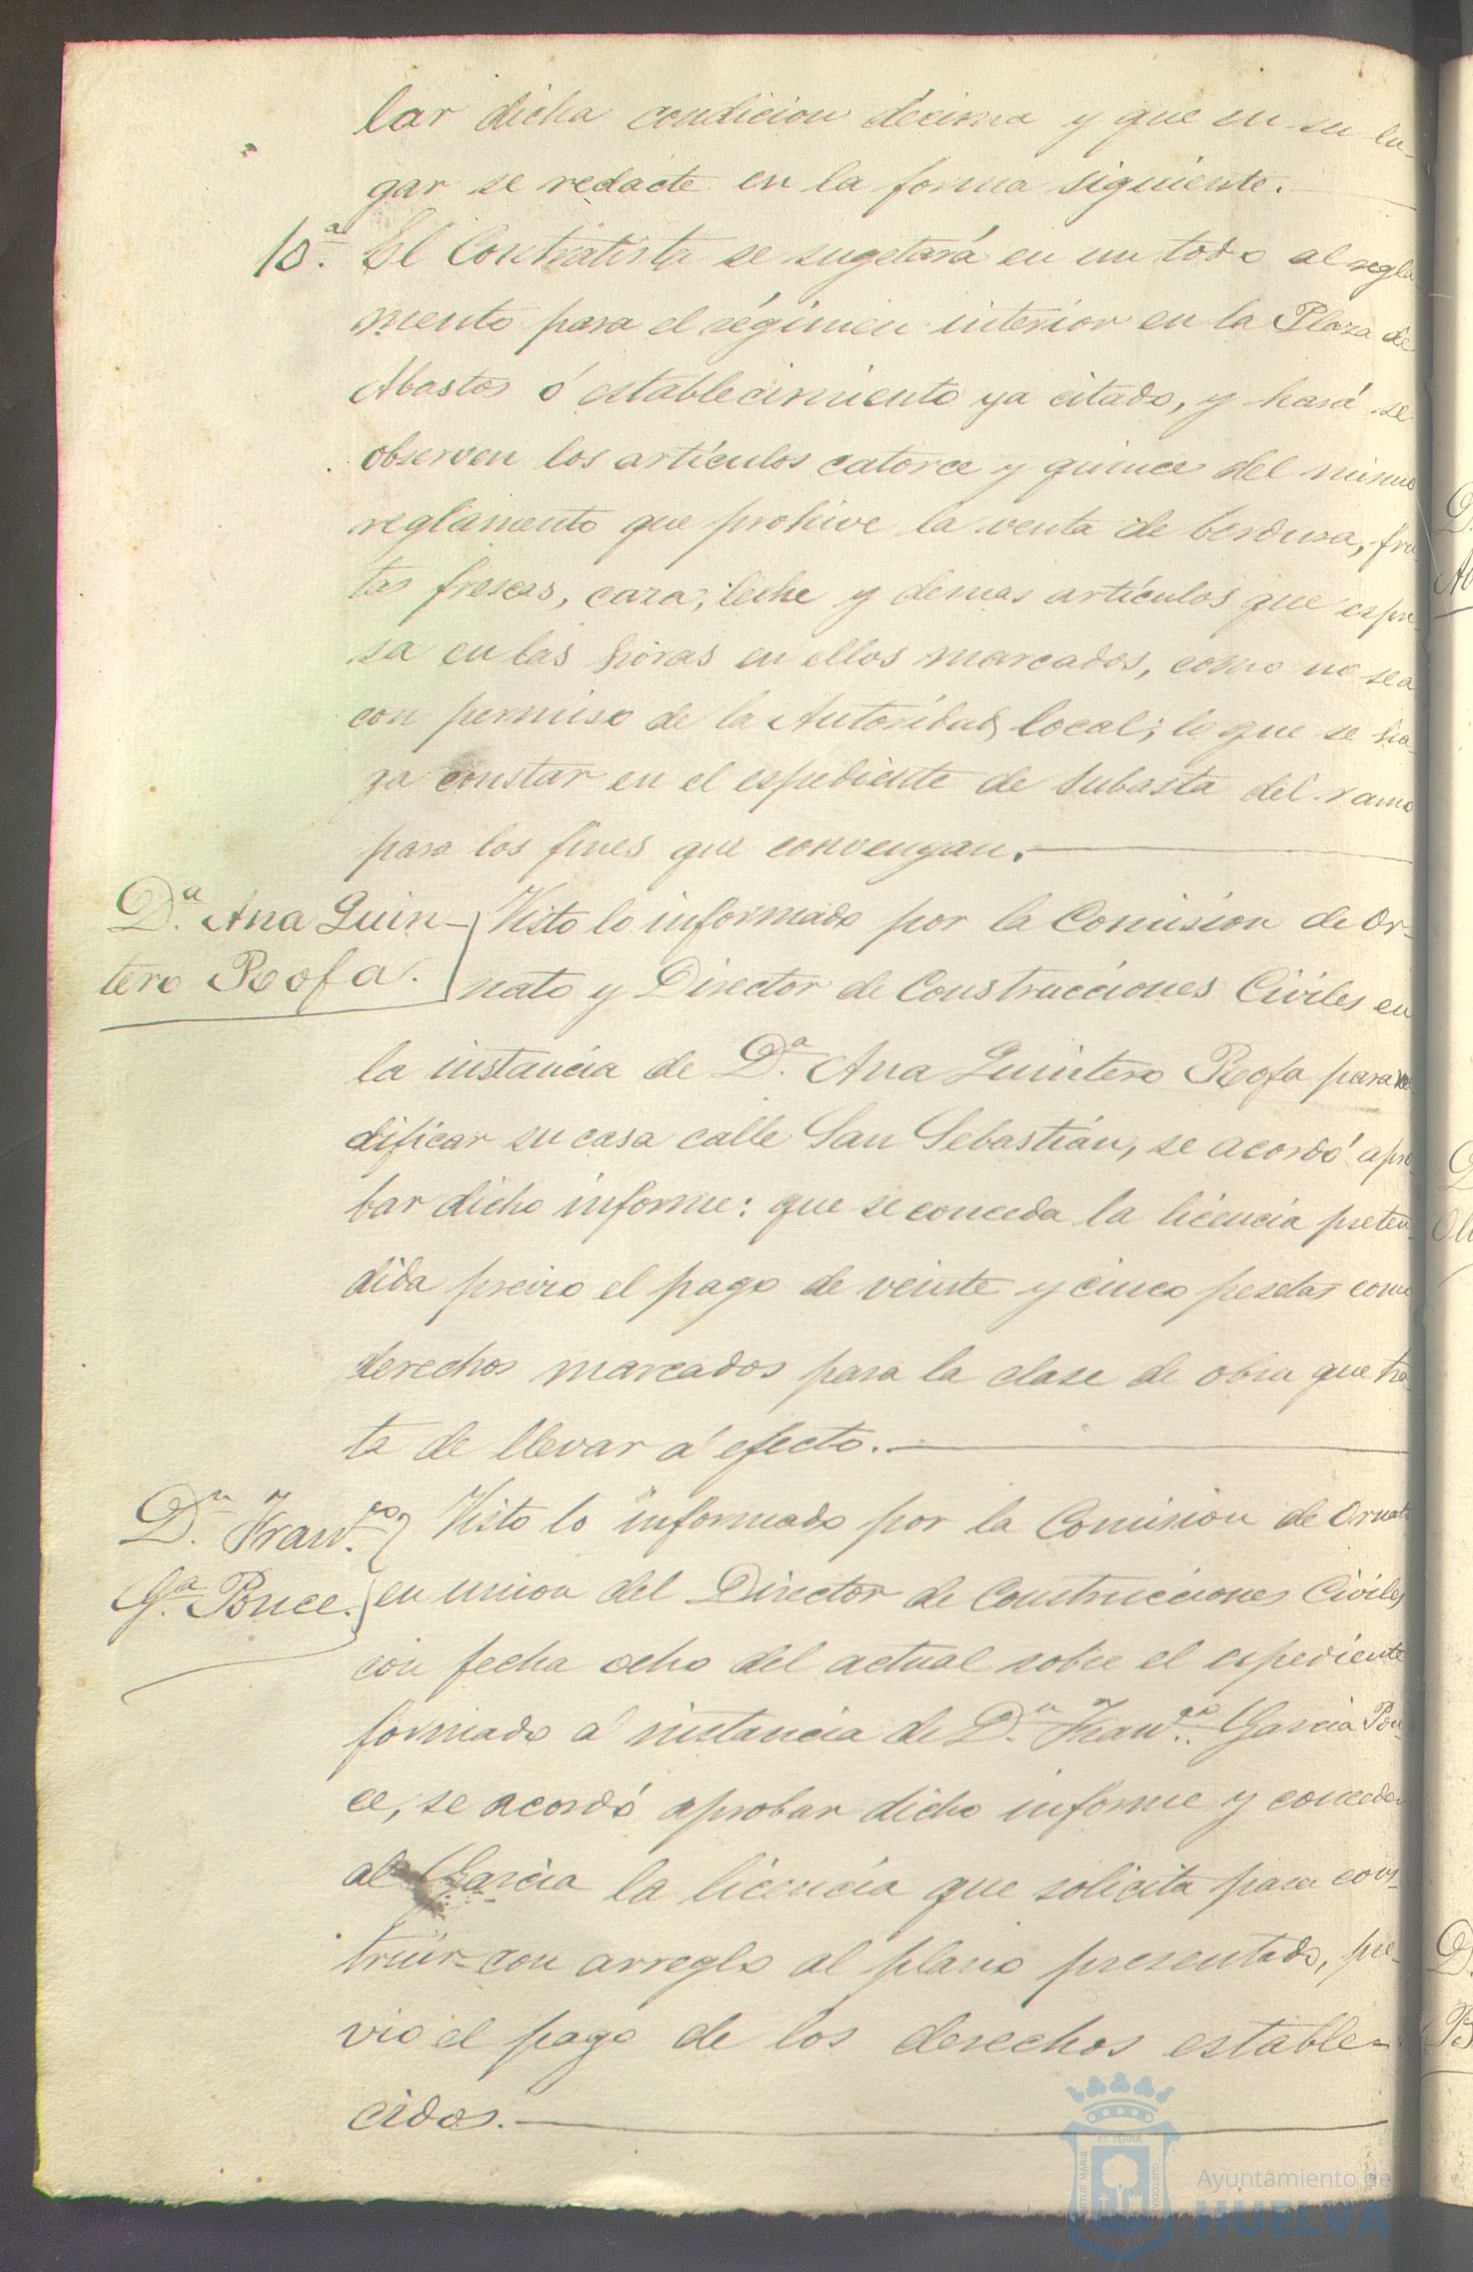 lar dicha condicion décima y que en su lu-
gar se redacte en la forma siguiente.
10.ª El Contratista se sugetará en un todo al regla-
mento para el régimen interior en la Plaza de
Abastos ó establecimiento ya citado, y hará se
observen los artículos catorce y quince del mismo
reglamento que prohive la venta de berdura, fru-
tas frescas, caza, leche y demas artículos que espre-
sa en las horas en ellos marcados, como no sea
con permiso de la Autoridad local; lo que se ha-
ga constar en el espediente de subasta del ramo
para los fines que convengan.
D.ª Ana Quin-
tero Rofa.
Visto lo informado por la Comision de Or-
nato y Director de Construcciones Civiles en
la instancia de D.ª Ana Quintero Rofa para ree
dificar su casa calle San Sebastián, se acordó apro-
bar dicho informe: que se conceda la licencia preten-
dida previo el pago de veinte y cinco pesetas como
derechos marcados para la clase de obra que tra-
ta de llevar á efecto.
D.n Fran.co
G.ª Ponce.
Visto lo informado por la Comision de Ornato
en union del Director de Construcciones Civiles
con fecha ocho del actual sobre el espediente
formado á instancia de D.n Fran.co Garcia Pon-
ce, se acordó aprobar dicho informe y conceder
al Garcia la licencia que solicita para cons-
truir con arreglo al plano presentado, pre-
vio el pago de los derechos estable-
cidos.
PORTUS MARIS ET TERRÆ CUSTODIA
Ayuntamiento de
HUELVA